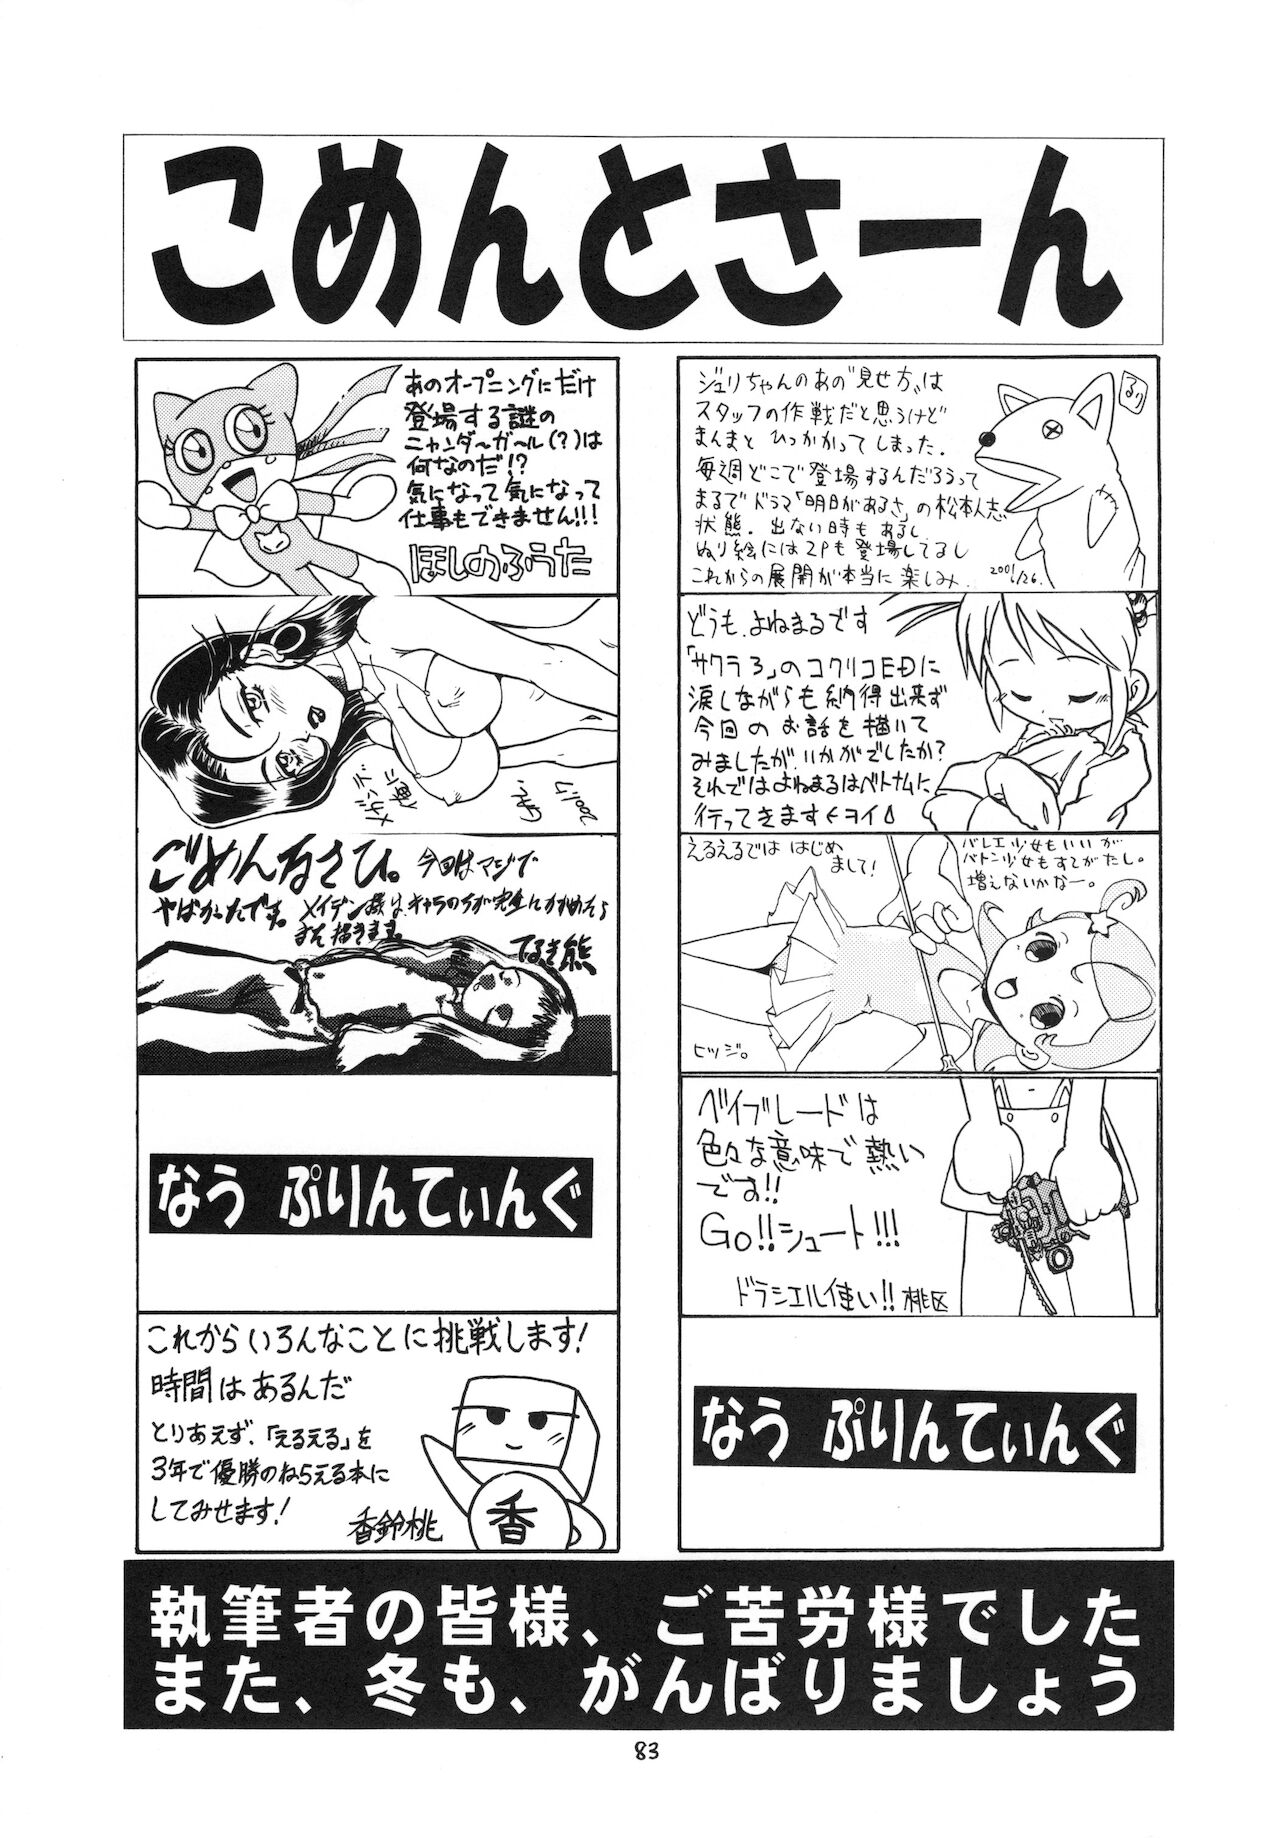 こめんとさーん
ジュリちゃんのあの"見せ方"は
スタッフの作戦だと思うけど
まんまと ひっかかってしまった.
毎週どこで登場するんだろうって
まるでドラマ「明日があるさ」の松本人志
状態. 出ない時もあるし
ぬり絵には2Pも登場してるし
これからの展開が本当に楽しみ.
どうも.よねまるです
「サクラ3」のコクリコEDに
涙しながらも納得出来ず
今回のお話を描いて
みましたが、いかがでしたか?
それではよねまるはベトナムに
行ってきます
えるえるでは はじめ
まして!
バレエ少女もいいが
バトン少女もすてがたし。
増えないかなー。
ヒツジ。
ベイブレードは
色々な意味で熱い
です!!
Go!!シュート!!!
ドラシエル使い!! 桃区
なう ぷりんてぃんぐ
あのオープニングにだけ
登場する謎の
ニャンダーガール(?)は
何なのだ!?
気になって気になって
仕事もできません!!!
ほしのふうた
ごめんなさい。今回はマジで
やばかったです。
てるき熊
なう ぷりんてぃんぐ
これからいろんなことに挑戦します!
時間はあるんだ
とりあえず、「えるえる」を
3年で優勝のねらえる本に
してみせます!
香鈴桃
香
執筆者の皆様、ご苦労様でした
また、冬も、がんばりましょう
83